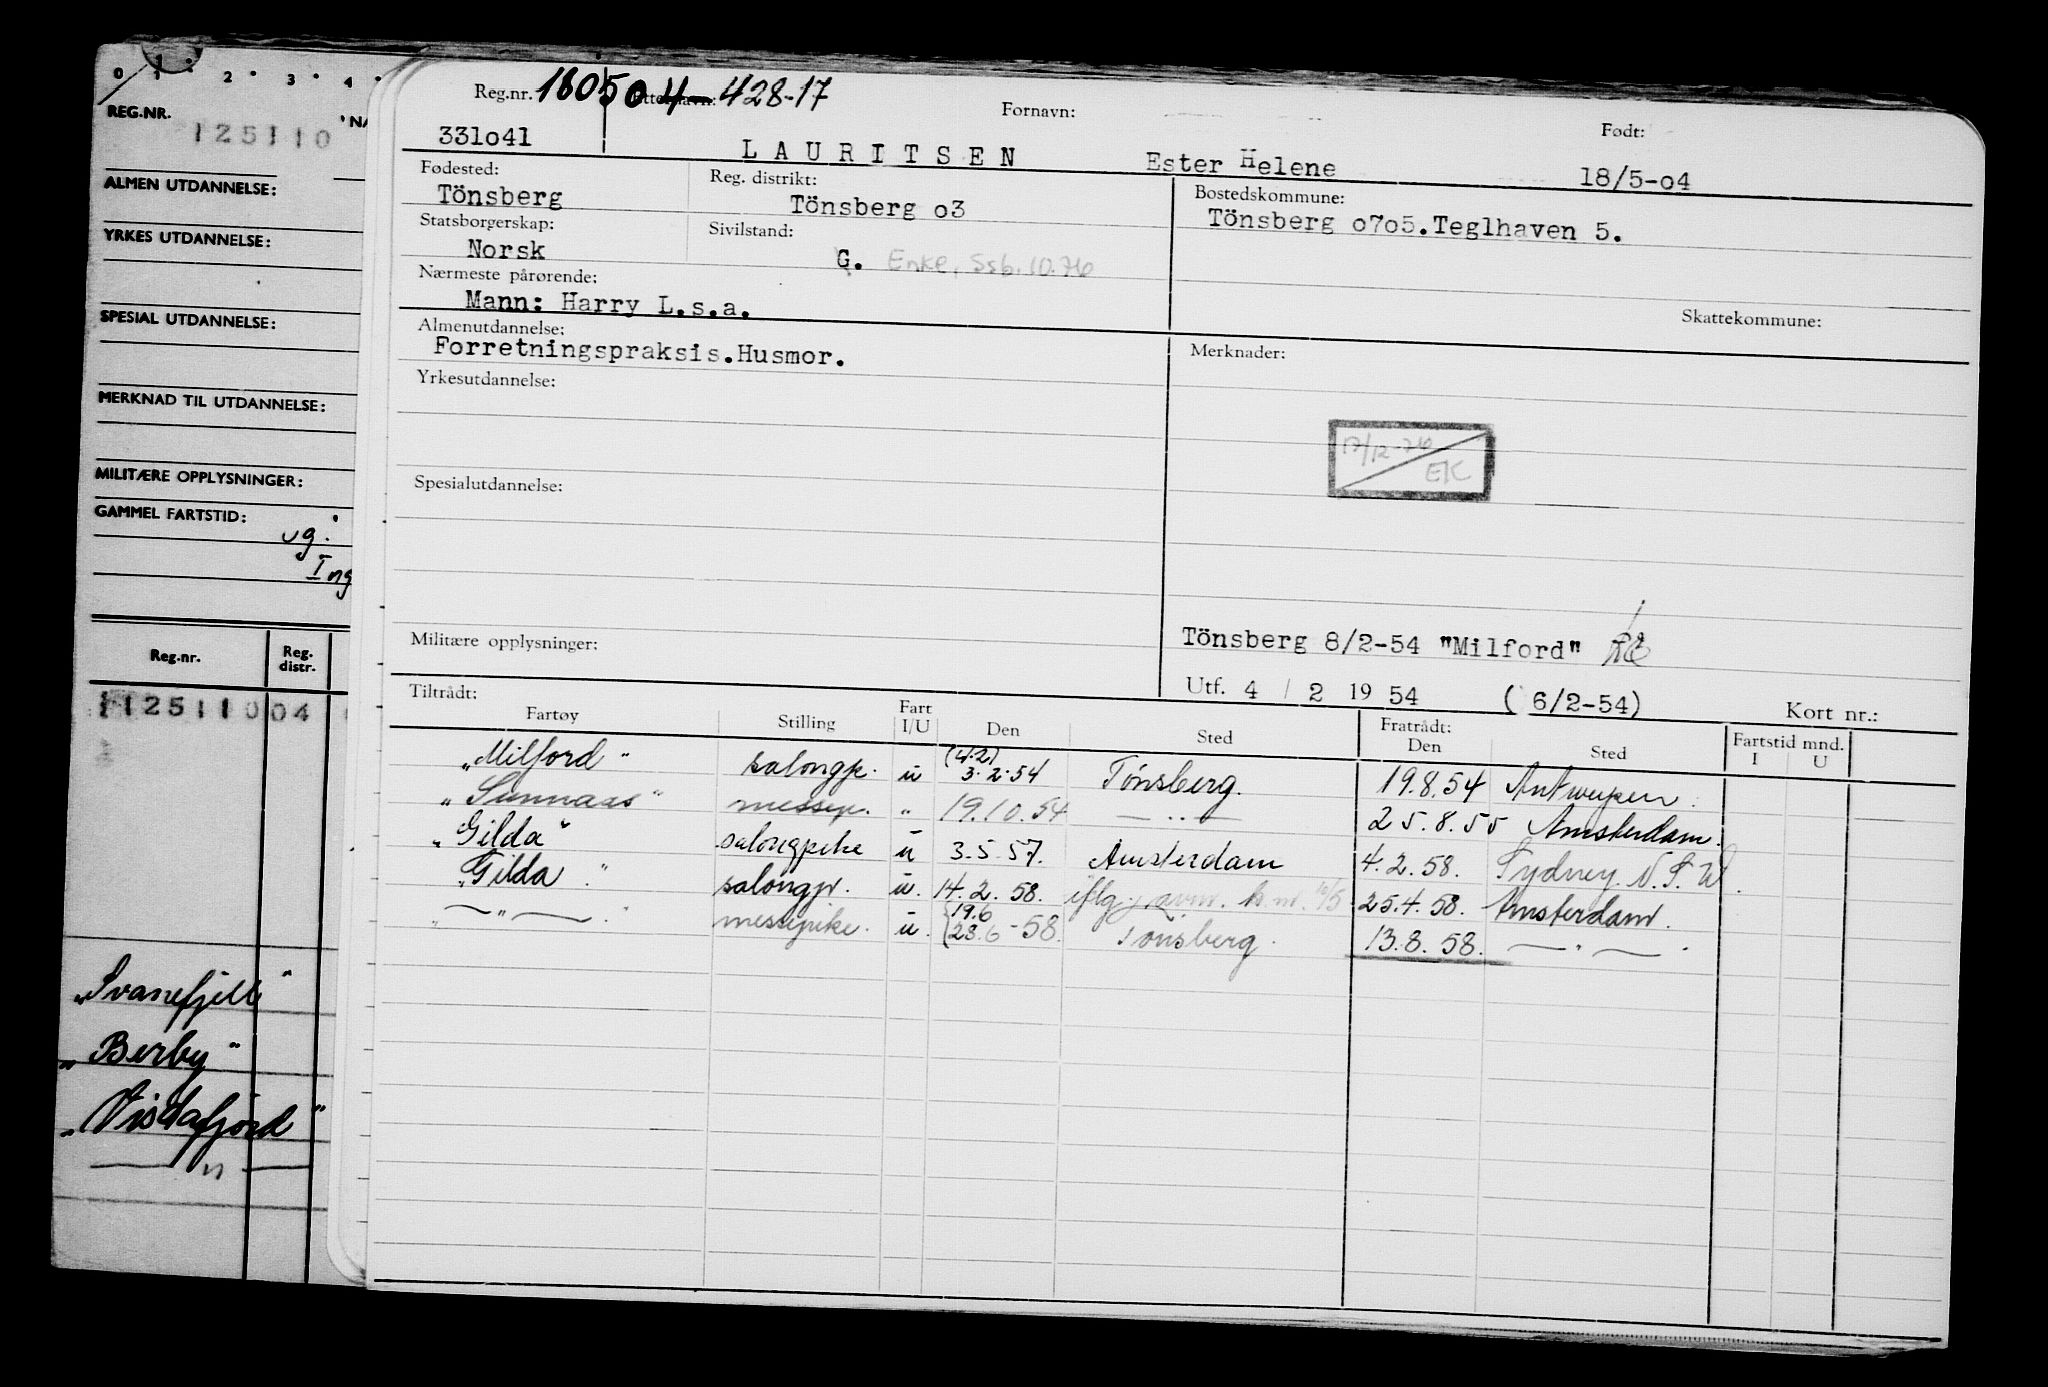 0 1 2 3 4
REG.NR.
125110
ALMEN UTDANNELSE:
YRKES UTDANNELSE:
SPESIAL UTDANNELSE:
MERKNAD TIL UTDANNELSE:
MILITÆRE OPPLYSNINGER:
GAMMEL FARTSTID:
Reg.nr. Reg. distr.
112511004
"Svanefjell"
"Berby"
"Vistafjord"
— " —
Reg.nr. 180504-428-17
Fornavn: Født:
331o41 LAURITSEN Ester Helene 18/5-o4
Fødested: Reg. distrikt: Bostedskommune:
Tönsberg Tönsberg o3 Tönsberg o7o5.Teglhaven 5.
Statsborgerskap: Sivilstand:
Norsk G. Enke, Ssb. 10.76
Nærmeste pårørende:
Mann: Harry L.s.a.
Skattekommune:
Almenutdannelse: Merknader:
Forretningspraksis.Husmor.
Yrkesutdannelse:
17/12-76 EK
Spesialutdannelse:
Militære opplysninger: Tönsberg 8/2-54 "Milford"
Utf. 4 / 2 19 54 ( 6/2-54) Kort nr.:
Tiltrådt: Fratrådt: Fartstid mnd.
Fartøy Stilling Fart I/U Den Sted Den Sted I U
"Milford" salongp. u (4.2) 3.2.54 Tönsberg. 19.8.54 Antwerpen.
"Sunnaas" messep. " 19.10.54 — " — 25.8.55 Amsterdam.
"Gilda" salongpike u 3.5.57. Amsterdam 4.2.58. Sydney. N.S.W.
"Gilda" salongp. u. 14.2.58. iflg. 25.4.58. Amsterdam.
" — " — " messepike. u. 19.6 28.6 -58. Tönsberg. 13.8.58. — " —